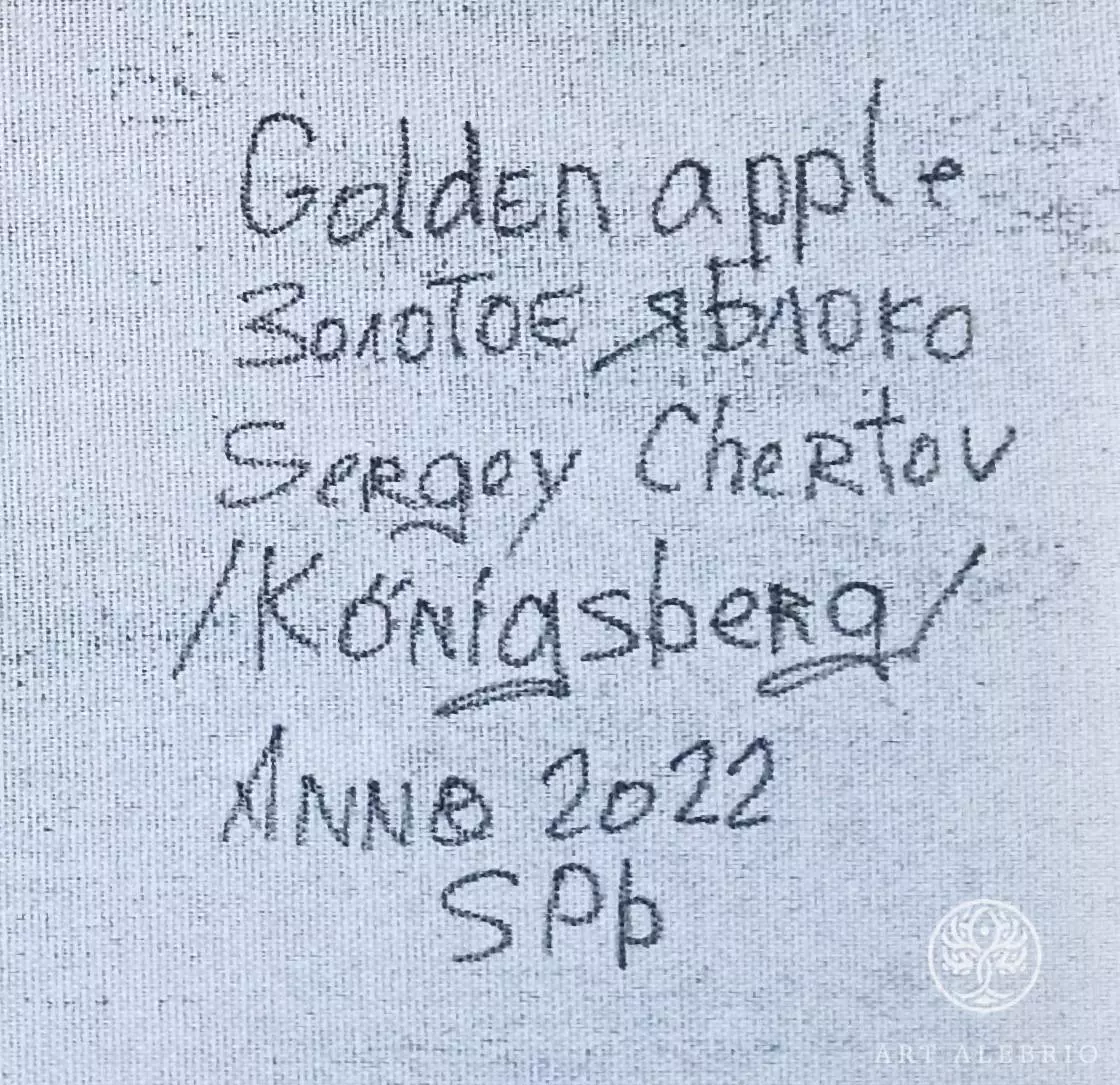 Golden apple
Золотое яблоко
Sergey Chertov
/Königsberg/
Anno 2022
SPb
ART ALEBRIO